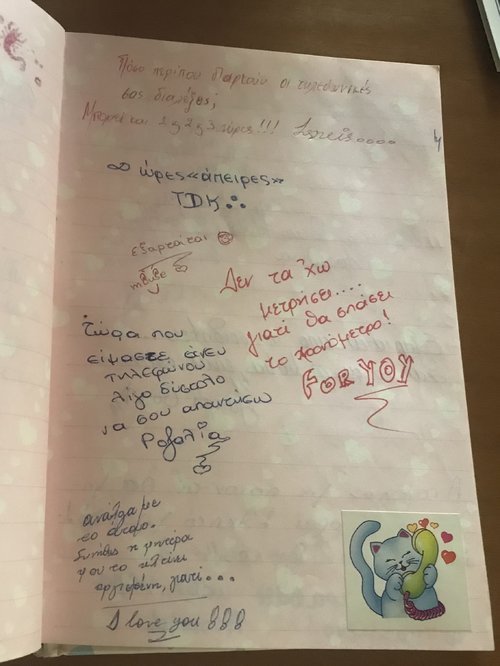 Πόσο περίπου διαρκούν οι τηλεφωνικές
σας διαλέξεις;
Μπορεί και 1 ή 2 ή 3 ώρες!!!
4
∞ ώρες «άπειρες»
TDK
εξαρτάται
Δεν τα 'χω
μετρήσει....
γιατί θα σπάσει
το χρονόμετρο!
FOR YOY
τώρα που
είμαστε άνευ
τηλεφώνου
λίγο δύσκολο
να σου απαντήσω
Ροζαλία
ανάλογα με
το άτομο.
Συνήθως η μητέρα
μου το κλείνει
αργισμένη, γιατί...
I love you